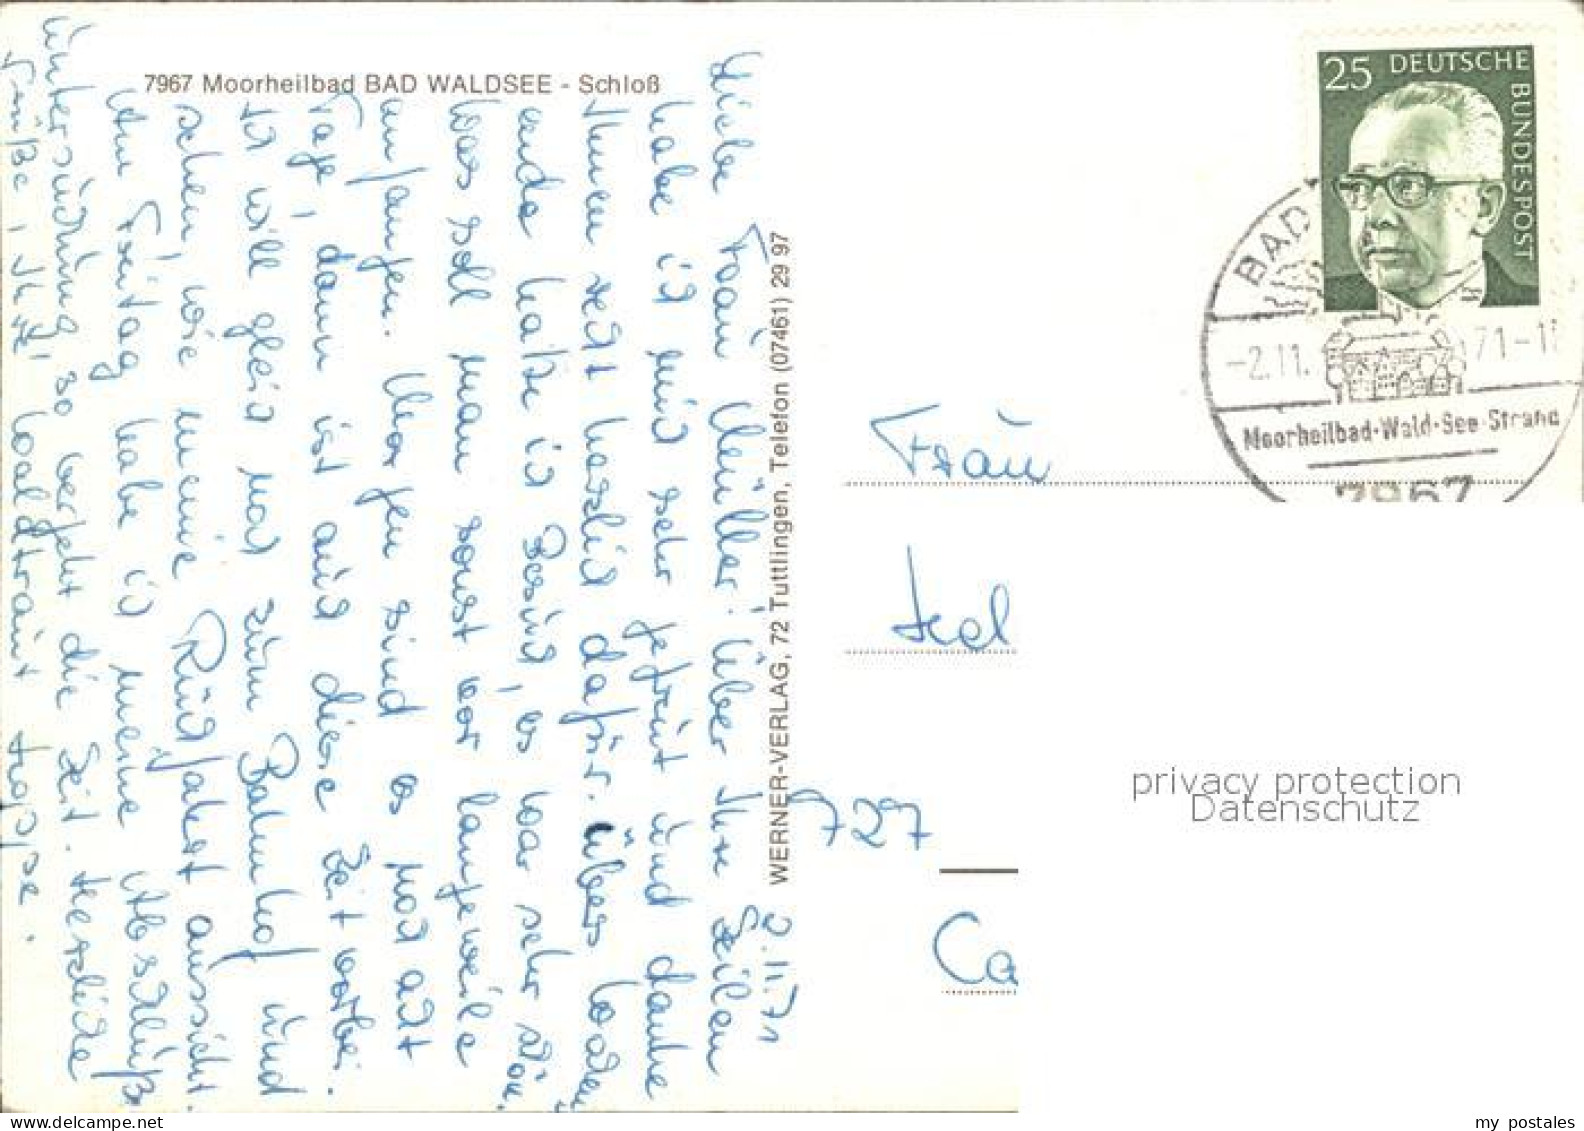 7967 Moorheilbad BAD WALDSEE - Schloß
2.11.71
Liebe Frau Müller! Über Ihre Zeilen
habe ich mich sehr gefreut und danke
Ihnen recht herzlich dafür. Übers Wochen
ende hatte ich Besuch, es war sehr schön.
Was soll man sonst vor Langeweile
anfangen. Morgen sind es noch acht
Tage, dann ist auch diese Zeit vorbei.
Ich will gleich noch zum Bahnhof und
sehen, wie meine Rückfahrt aussieht.
Am Freitag habe ich meine Abschluß
untersuchung, so vergeht die Zeit. Herzliche
Grüße, Ihre Waldtraut
WERNER-VERLAG, 72 Tuttlingen, Telefon (07461) 29 97
25 DEUTSCHE BUNDESPOST
BAD
-2.11. 71-1
Moorheilbad·Wald-See-Strand
7967
Frau
Hel
727
Ca
privacy protection
Datenschutz
my postales